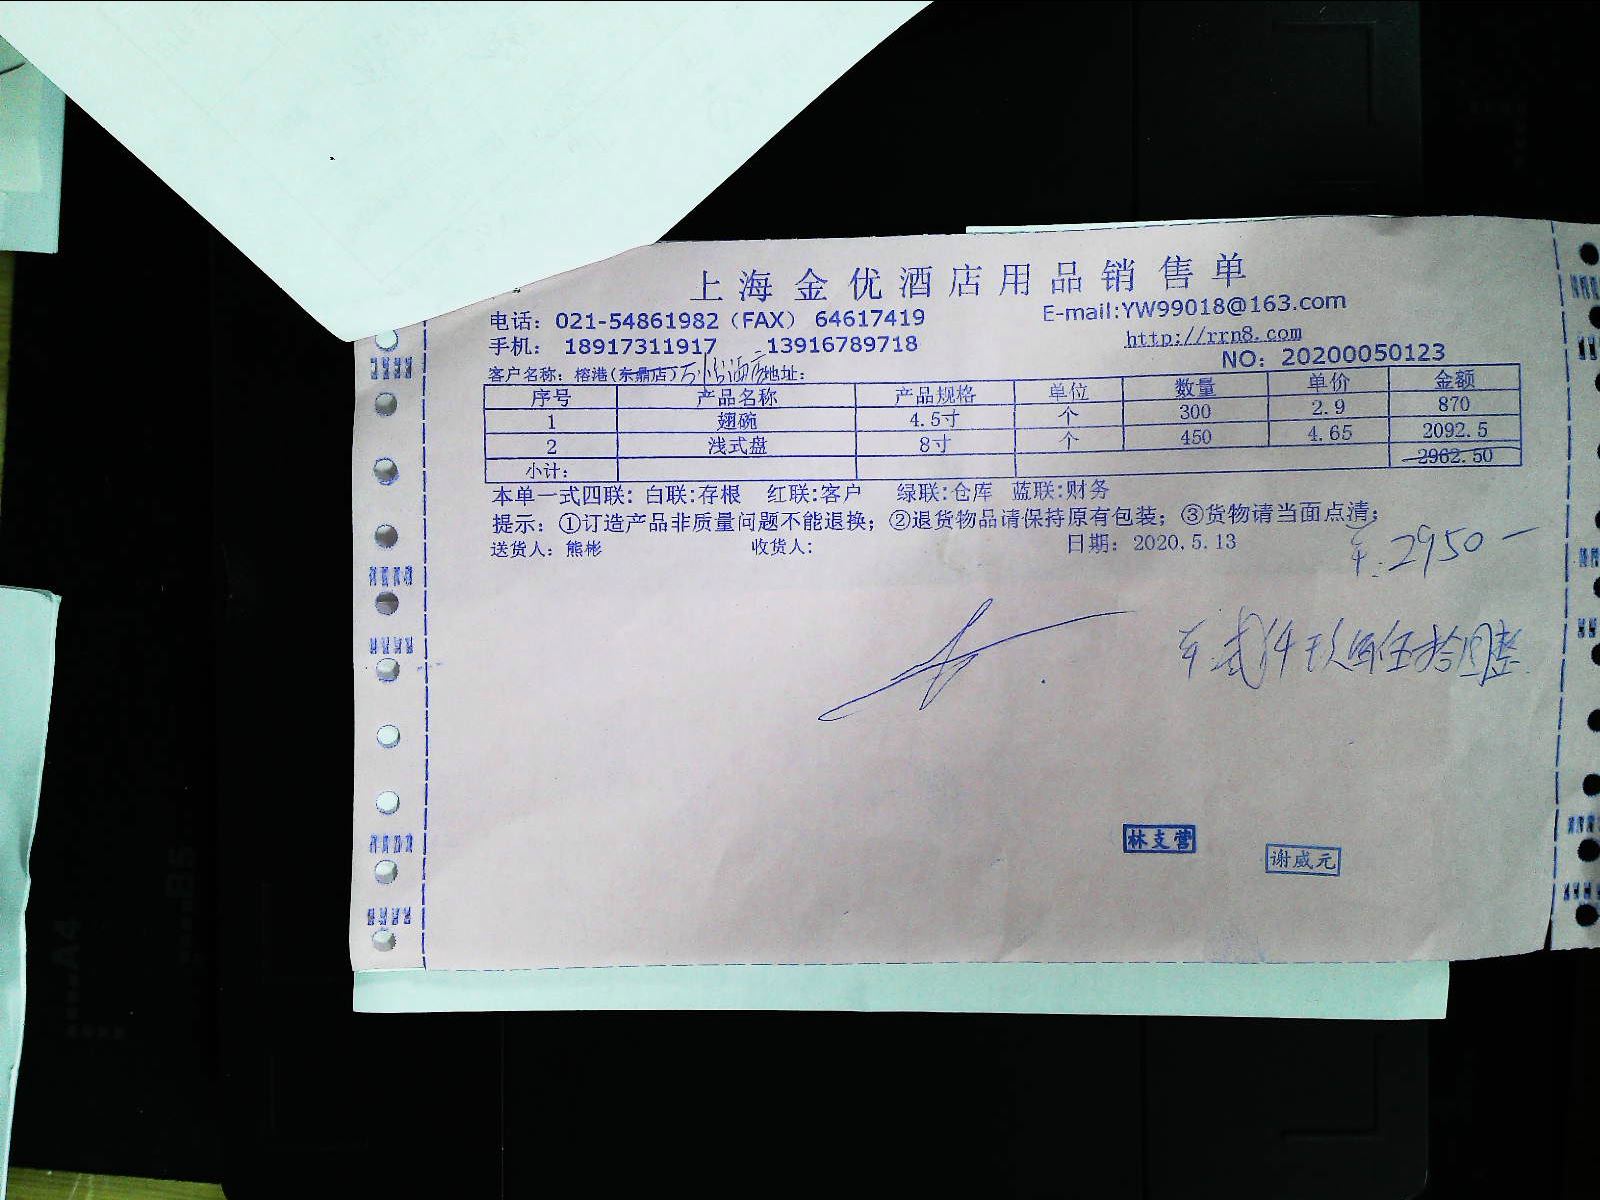 上海金优酒店用品销售单
电话：021-54861982（FAX） 64617419
E-mail:YW99018@163.com
手机： 18917311917 13916789718
http://rrn8.com
NO：20200050123
客户名称：榕港(东鼎店) 地址：
序号 产品名称 产品规格 单位 数量 单价 金额
1 翅碗 4.5寸 个 300 2.9 870
2 浅式盘 8寸 个 450 4.65 2092.5
小计： 2962.50
本单一式四联：白联:存根 红联:客户 绿联:仓库 蓝联:财务
提示：①订造产品非质量问题不能退换；②退货物品请保持原有包装；③货物请当面点清；
送货人：熊彬 收货人: 日期：2020.5.13
¥:2950—
贰仟玖佰伍拾圆整
林支营
谢威元
A4
B5